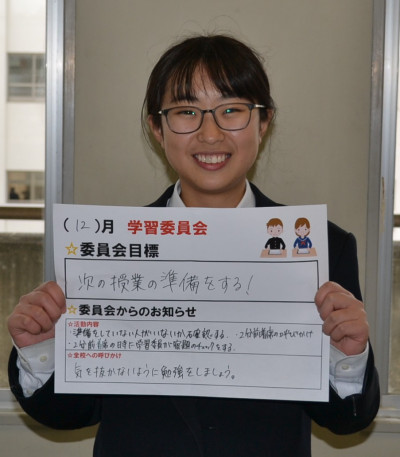 （ 12 ）月 学習委員会
☆委員会目標
次の授業の準備をする！
☆委員会からのお知らせ
☆活動内容
・準備をしていない人がいないか確認する。・2分前着席の呼びかけ
・2分前着席の時に学習委員が宿題のチェックをする。
☆全校への呼びかけ
気を抜かないように勉強をしましょう。